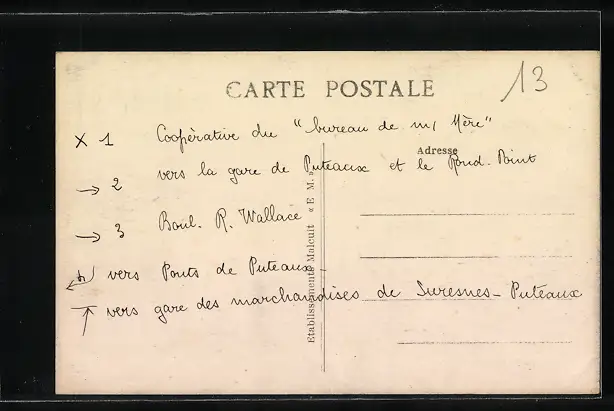 CARTE POSTALE
13
X 1 Coopérative du "bureau de m/ Mère"
Adresse
→ 2 vers la gare de Puteaux et le Rond-Point
→ 3 Boul. R. Wallace
vers Ponts de Puteaux
vers gare des marchandises de Suresnes-Puteaux
Etablissements Malcuit « E. M. »